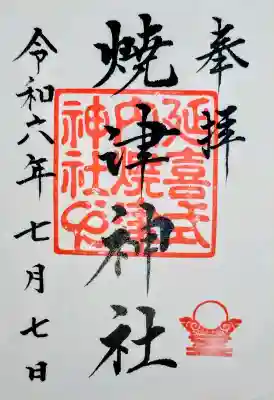 奉拝
燒津神社
延喜式
内燒津
神社印
令和六年七月七日